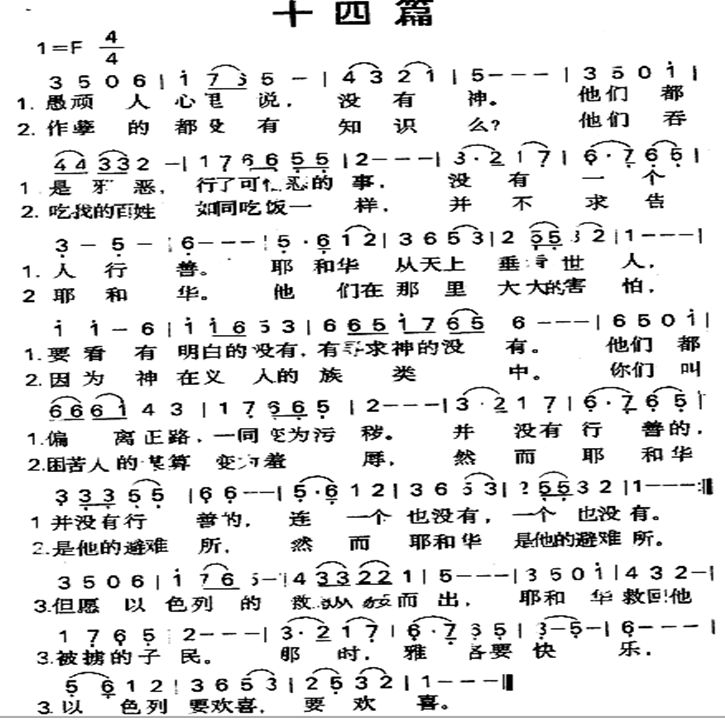 十四篇
1=F 4/4
3 5 0 6 | 1 7 6 5 – | 4 3 2 1 | 5 - - - | 3 5 0 1 |
1. 愚顽 人 心里 说， 没 有 神。 他们 都
2. 作孽 的 都没 有 知 识 么? 他们 吞
4 4 3 3 2 – | 1 7 6 6 5 5 | 2 - - - | 3 · 2 1 7 | 6 · 7 6 5 |
1 是 邪 恶， 行了可 恶的 事， 没 有 一 个
2. 吃我的百姓 如同吃饭一 样， 并 不 求 告
3 – 5 – | 6 - - - | 5 · 6 1 2 | 3 6 5 3 | 2 5 5 3 2 | 1 - - - |
1. 人 行 善。 耶 和华 从天上 垂 世 人，
2 耶 和 华。 他 们在 那 里 大 大的害 怕，
1 1 – 6 | 1 1 6 5 3 | 6 6 5 1 7 6 5 6 - - - | 6 5 0 1 |
1. 要 看 有 明白的 没有，有寻求神的没 有。 他们 都
2. 因为 神 在义 人的 族 类 中。 你们 叫
6 6 6 1 4 3 | 1 7 6 6 5 | 2 - - - | 3 · 2 1 7 | 6 · 7 6 5 |
1. 偏 离正路，一同变为污 秽。 并 没有 行 善的，
2. 困苦人 的谋算 变为羞 辱， 然 而 耶 和华
3 3 3 5 5 | 6 6 - - | 5 · 6 1 2 | 3 6 5 3 | 2 5 5 3 2 | 1 - - - :||
1 并没有行 善的， 连 一个 也没有，一个 也没有。
2. 是他的避难 所， 然 而 耶和华 是他的避难 所。
3 5 0 6 | 1 7 6 5 - | 4 3 3 2 2 1 | 5 - - - | 3 5 0 1 | 4 3 2 – |
3. 但愿 以 色列 的 救 从 而 出， 耶和 华 救回他
1 7 6 5 2 - - - | 3 · 2 1 7 | 6 · 7 6 5 | 3 – 5 – | 6 - - - |
3. 被掳的子 民。 那 时， 雅 各要 快 乐，
5 6 1 2 | 3 6 5 3 | 2 5 3 2 | 1 - - - ||
3. 以 色列 要欢喜， 要 欢 喜。